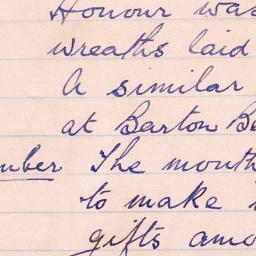 Honour was
wreaths laid
A similar
at Barton
mber The month
to make
gifts amo